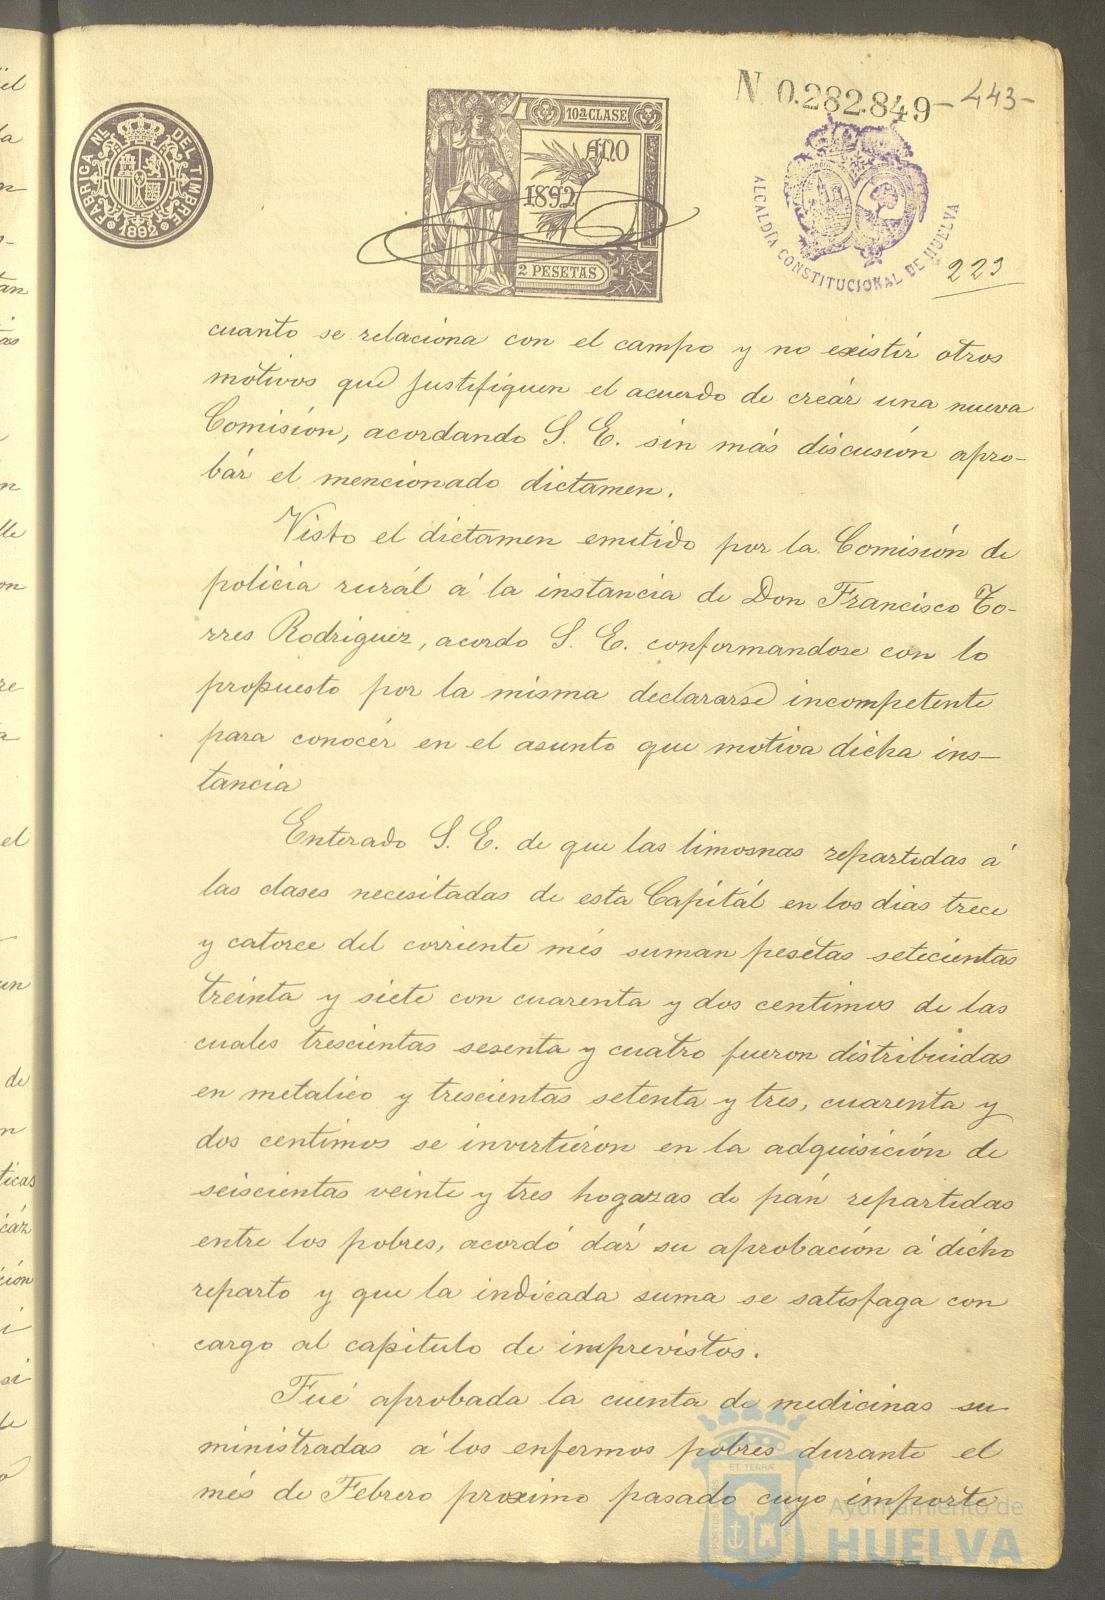 N 0.282.849
-443-
FABRICA NL. DEL TIMBRE
1892
10ª CLASE
AÑO
1892
2 PESETAS
ALCALDÍA CONSTITUCIONAL DE HUELVA
223
cuanto se relaciona con el campo y no existír otros
motivos que justifiquen el acuerdo de creár una nueva
Comisión, acordando S. E. sin más discusión apro-
bár el mencionado dictamen.
Visto el dictamen emitido por la Comisión de
policia rurál á la instancia de Don Francisco To-
rres Rodriguez, acordo S. E. conformandose con lo
propuesto por la misma declararse incompetente
para conocér en el asunto que motiva dicha ins-
tancia
Enterado S. E. de que las limosnas repartidas á
las clases necesitadas de esta Capitál en los dias trece
y catorce del corriente més suman pesetas setecientas
treinta y siete con cuarenta y dos centimos de las
cuales trescientas sesenta y cuatro fueron distribuidas
en metalico y trescientas setenta y tres, cuarenta y
dos centimos se invirtieron en la adquisición de
seiscientas veinte y tres hogazas de pán repartidas
entre los pobres, acordó dár su aprobación á dicho
reparto y que la indicada suma se satisfaga con
cargo al capitulo de imprevistos.
Fué aprobada la cuenta de medicinas su
ministradas á los enfermos pobres durante el
més de Febrero proximo pasado cuyo importe
Ayuntamiento de
HUELVA